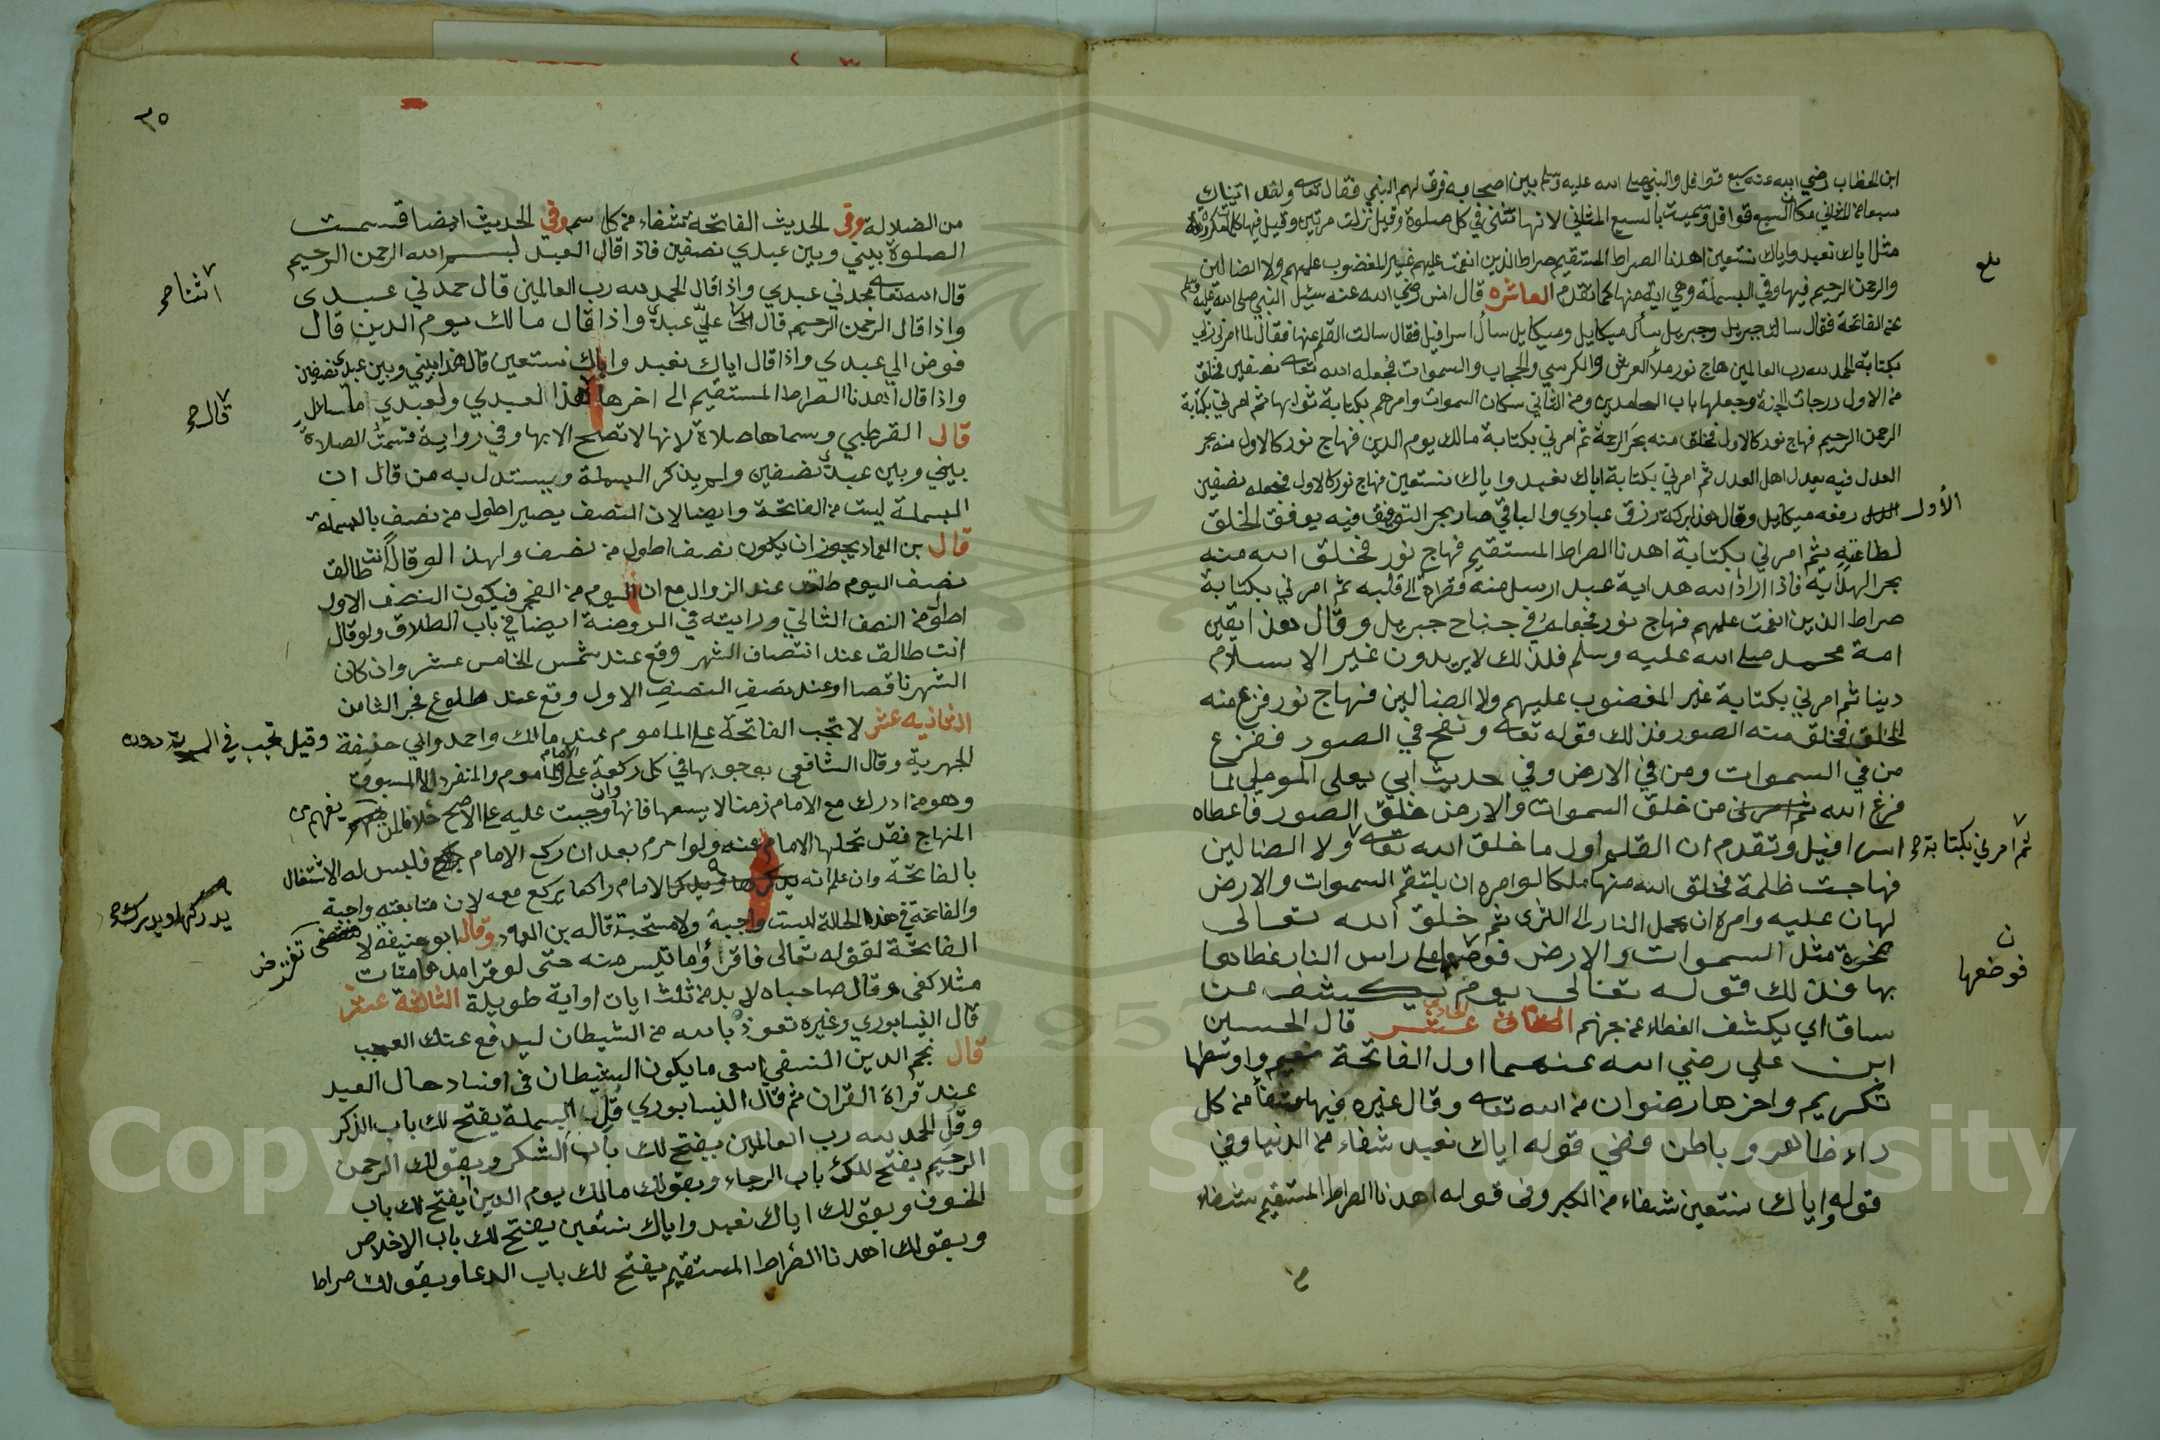 ابن الخطاب رضي الله عنه سبع قوافل والنبي صلى الله عليه وسلم بين اصحابه فرق لهم النبي فقال تعالى ولقد اتيناك
سبعا من المثاني مكان السبع قوافل وسميت بالسبع المثاني لانها تثنى في كل صلوة وقيل نزلت مرتين وقيل فيها
مثل اياك نعبد واياك نستعين اهدنا الصراط المستقيم صراط الذين انعمت عليهم غير المغضوب عليهم ولا الضالين
والرحمن الرحيم فيها وفي البسملة وهي اية منها كما تقدم العاشره قال انس رضي الله عنه سئل النبي صلى الله عليه وسلم
عن الفاتحة فقال سالت جبريل وجبريل سأل ميكايل وميكايل سأل اسرافيل فقال سالت القلم عنها فقال لما امرني ربي
بكتابة الحمد لله رب العالمين هاج نور ملأ العرش والكرسي والحجاب والسموات فجعله الله تعالى نصفين فخلق
من الاول درجات الجنة وجعلها باب الحامدين ومن الثاني سكان السموات وامرهم بكتابة ثوابها ثم امرني بكتابة
الرحمن الرحيم فهاج نور كالاول فخلق منه بحر الرحمة ثم امرني بكتابة مالك يوم الدين فهاج نور كالاول منه بحر
العدل فيه يعدل اهل العدل ثم امرني بكتابة اياك نعبد واياك نستعين فهاج نور كالاول فجعله نصفين
الأول رفعه ميكايل وقال هذا بركة رزق عبادي والباقي صار بحر التوفيق فيه يوفق الخلق
لطاعته ثم امرني بكتابة اهدنا الصراط المستقيم فهاج نور فخلق الله منه
بحر الهداية فاذا اراد الله هداية عبد ارسل منه قطرة الى قلبه ثم امرني بكتابة
صراط الذين انعمت عليهم فهاج نور فجعله في جناح جبريل وقال هذا يقين
امة محمد صلى الله عليه وسلم فلذلك لا يريدون غير الاسلام
دينا ثم امرني بكتابة غير المغضوب عليهم ولا الضالين فهاج نور فزع منه
الخلق فخلق منه الصور فذلك قوله تعالى ونفخ في الصور ففزع
من في السموات ومن في الارض وفي حديث ابي يعلى الموصلي لما
فرغ الله من خلق السموات والارض خلق الصور فاعطاه
اسرافيل وتقدم ان القلم اول ما خلق الله تعالى ولا الضالين
ثم امرني بكتابة صح
فهاجت ظلمة فخلق الله منها ملكا لو امره ان يلتقم السموات والارض
لهان عليه وامره ان يحمل النار الى الثرى ثم خلق الله تعالى
صخرة مثل السموات والارض فوضعها على راس النار غطاها
فوضعها
بها فذلك قوله تعالى يوم يكشف عن
ساق اي يكشف الغطاء عن جهنم الحادي عشر قال الحسين
ابن علي رضي الله عنهما اول الفاتحة نعيم واوسطها
تكريم واخرها رضوان من الله تعالى وقال غيره فيها شفا من كل
داء ظاهر وباطن وفي قوله اياك نعبد شفاء من الدنيا وفي
قوله واياك نستعين شفاء من الكبر وفي قوله اهدنا الصراط المستقيم شفاء
٣٥
من الضلالة وفي الحديث الفاتحة شفاء من كل سم وفي الحديث ايضا قسمت
الصلوة بيني وبين عبدي نصفين فاذا قال العبد بسم الله الرحمن الرحيم
قال الله تعالى مجدني عبدي واذا قال الحمد لله رب العالمين قال حمدني عبدي
واذا قال الرحمن الرحيم قال الله اثنا علي عبدي واذا قال مالك يوم الدين قال
اثنا صح
فوض الي عبدي واذا قال اياك نعبد واياك نستعين قال هذا بيني وبين عبدي نصفين
واذا قال اهدنا الصراط المستقيم الى اخرها هذا لعبدي ولعبدي ما سأل
قال صح
قال القرطبي وسماها صلاة لانها لا تصح الا بها وفي رواية قسمت الصلاة
بيني وبين عبدي نصفين ولم يذكر البسملة ويستدل به من قال ان
البسملة ليست من الفاتحة وايضا لان النصف يصير اطول من نصف بالبسملة
قال بن العماد يجوز ان يكون نصف اطول من نصف ولهذا لو قال أنت طالق
نصف اليوم طلقت عند الزوال مع ان اليوم من الفجر فيكون النصف الاول
اطول من النصف الثاني ورايته في الروضة ايضا في باب الطلاق ولو قال
انت طالق عند انتصاف الشهر وقع عند شمس الخامس عشر وان كان
الشهر ناقصا او عند نصف النصف الاول وقع عند طلوع فجر الثامن
الثانيه عشر لا تجب الفاتحة على الماموم عند مالك واحمد وابي حنيفة وقيل تجب في السرية دون
الجهرية وقال الشافعي بوجوبها في كل ركعة على الامام والماموم والمنفرد الا المسبوق
وهو من ادرك مع الامام زمنا لا يسعها فانها وان وجبت عليه على الاصح خلافا لمن يفهم من
المنهاج فقد تحملها الامام عنه ولو احرم بعد ان ركع الامام فليس له الاشتغال
بالفاتحة وان علم انه يدرك الامام راكعا يركع معه لان متابعته واجبة
يدركها ويدرك صح
والفاتحة في هذه الحالة ليست واجبة ولا مستحبة قاله بن العماد وقال ابو حنيفة لا تفترض
الفاتحة لقوله تعالى فاقرؤا ما تيسر منه حتى لو قرا مدهامتان
مثلا كفى وقال صاحباه لا بد من ثلث ايات او اية طويلة الثالثة عشر
قال النيسابوري وغيره تعوذ بالله من الشيطان ليدفع عنك العجب
قال نجم الدين النسفي اسعى ما يكون الشيطان في افساد حال العبد
عند قراة القران ثم قال النيسابوري قل البسملة يفتح لك باب الذكر
وقل الحمد لله رب العالمين يفتح لك باب الشكر وبقولك الرحمن
الرحيم يفتح لك باب الرجاء وبقولك مالك يوم الدين يفتح لك باب
الخوف وبقولك اياك نعبد واياك نستعين يفتح لك باب الاخلاص
وبقولك اهدنا الصراط المستقيم يفتح لك باب الدعا وبقولك صراط
Copyright © King Saud University
1957